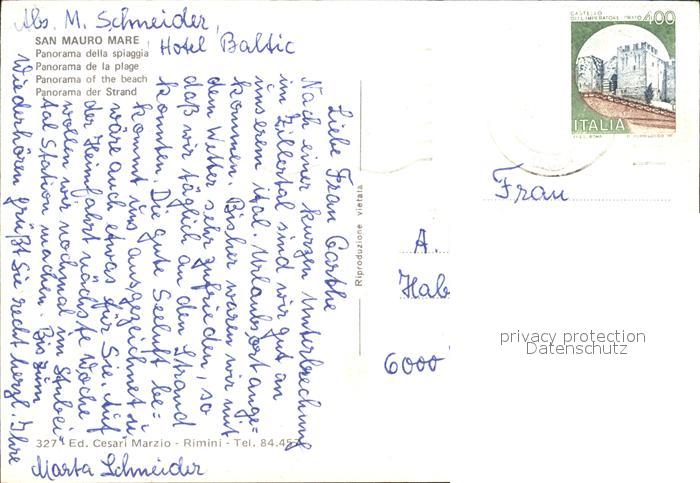 Abs. M. Schneider,
Hotel Baltic
SAN MAURO MARE
Panorama della spiaggia
Panorama de la plage
Panorama of the beach
Panorama der Strand
Liebe Frau Garthe
Nach einer kurzen Unterbrechung
im Zillertal sind wir gut an
unserem ital. Urlaubsort ange=
kommen. Bisher waren wir mit
dem Wetter sehr zufrieden, so
daß wir täglich an den Strand
konnten. Die gute Seeluft be=
kommt uns ausgezeichnet u.
wäre auch etwas für Sie. Auf
der Heimfahrt nächste Woche
wollen wir nochmal im Stubei=
tal Station machen. Bis zum
Wiederhören grüßt Sie recht herzl. Ihre
Marta Schneider
327 Ed. Cesari Marzio - Rimini - Tel. 84.45
Riproduzione vietata
CASTELLO
DELL'IMPERATORE PRATO 400
ITALIA
Frau
A.
Hab
6000
privacy protection
Datenschutz